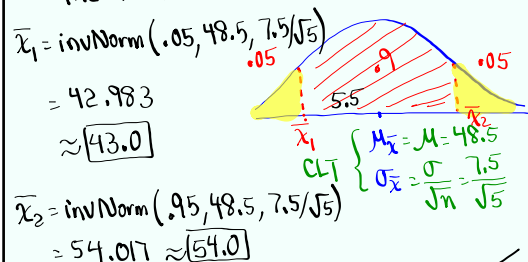 x̄₁ = invNorm(.05, 48.5, 7.5/√5)
= 42.983
≈ 43.0
x̄₂ = invNorm(.95, 48.5, 7.5/√5)
= 54.017 ≈ 54.0
.05 .9 .05
5.5
x̄₁ x̄₂
CLT { μx̄ = μ = 48.5
σx̄ = σ/√n = 7.5/√5